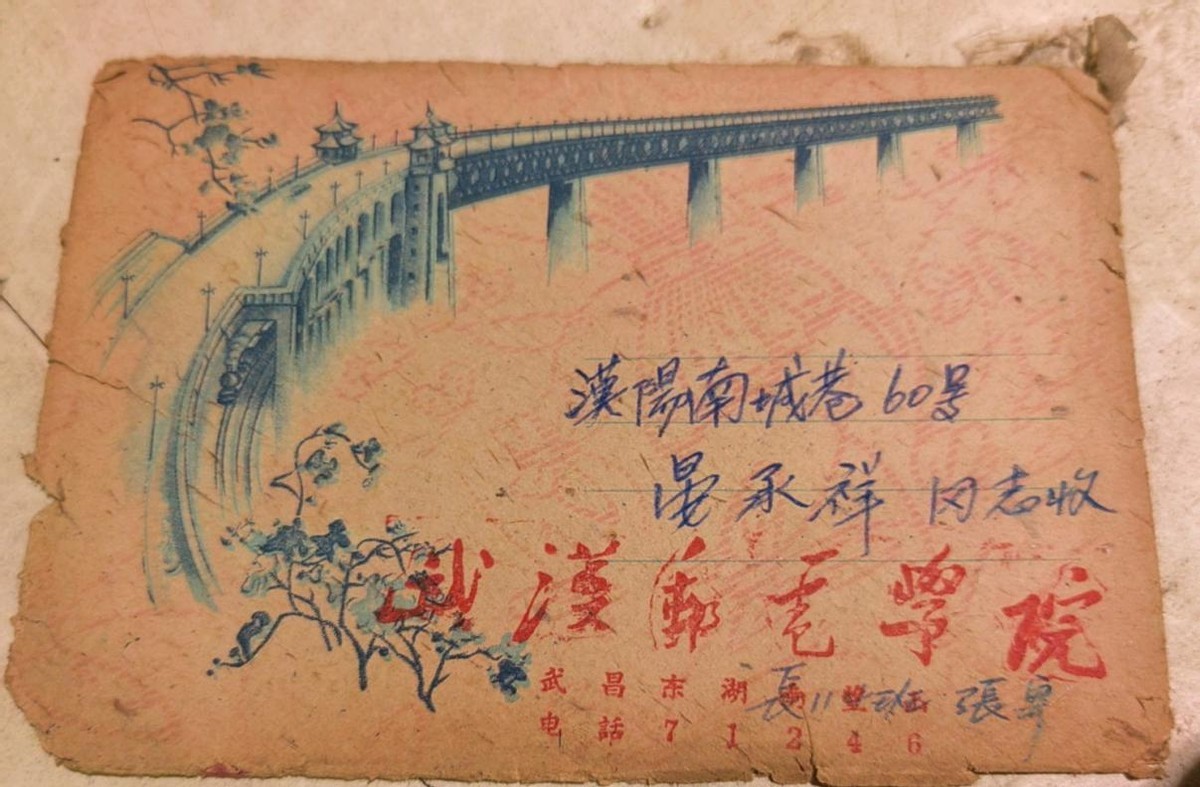 漢陽南城巷60号
晏承祥 同志收
武漢郵電學院
武昌东湖
長11班 張
电話71246